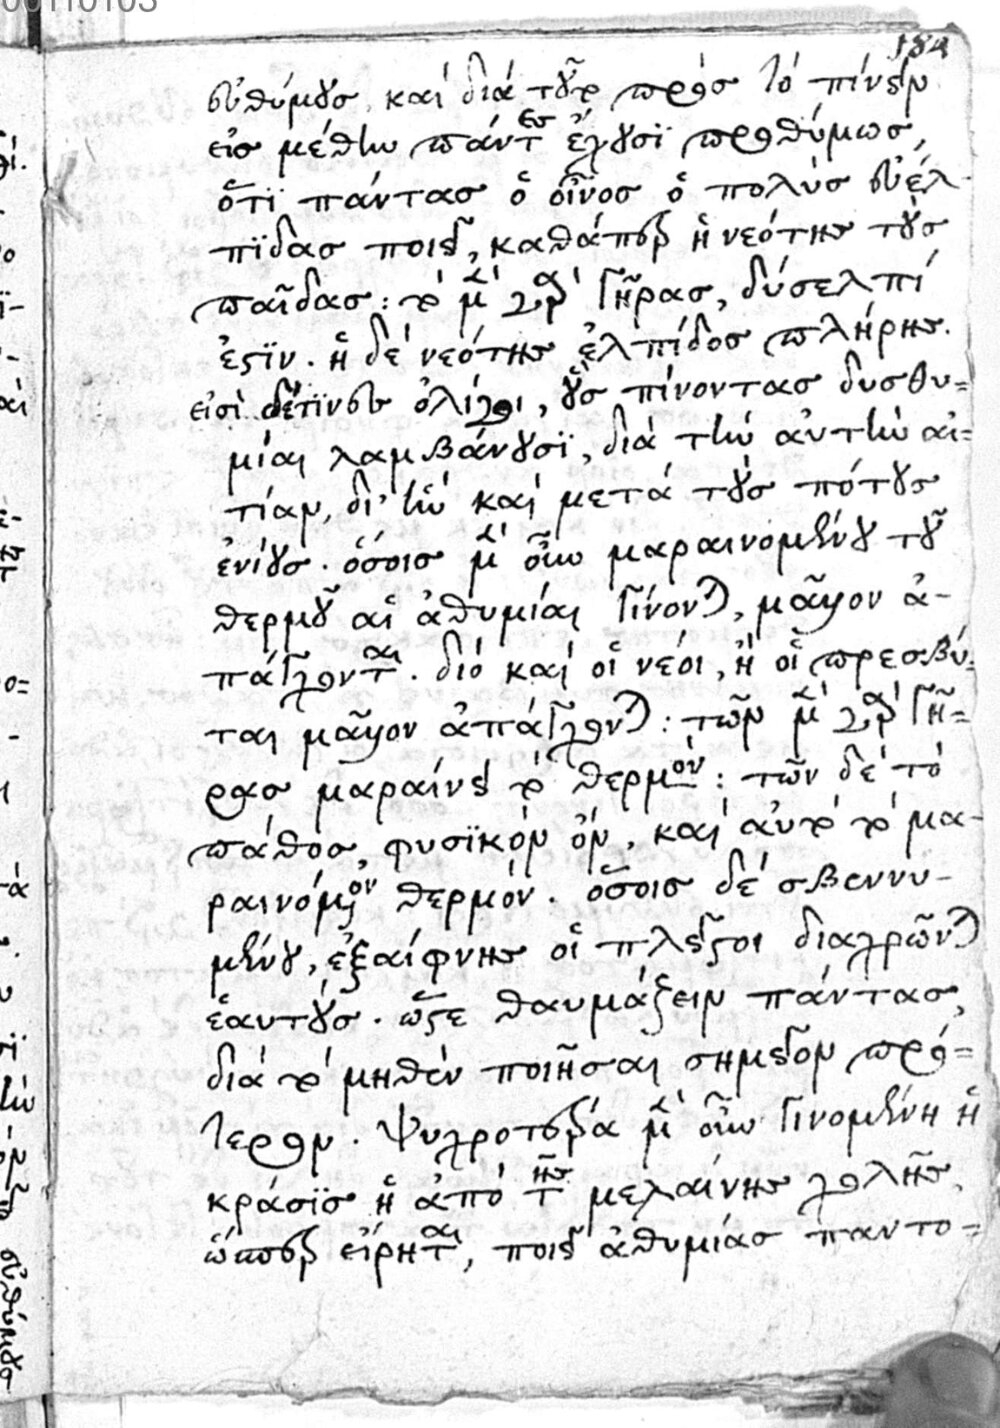 00110103
184
εὐθύμους, καὶ διὰ τοῦτο πρὸς τὸ πίνειν
εἰς μέθην πάντες ἔχουσϊ προθύμως,
ὅτϊ πάντας ὁ οἶνος ὁ πολὺς εὐέλ-
πϊδας ποιεῖ, καθάπερ ἡ νεότης τοὺς
παῖδας: τὸ μὲν γὰρ γῆρας, δύσελπί
ἐστϊν. ἡ δὲ νεότης ἐλπίδος πλήρης.
εἰσὶ δέ τϊνες ὀλίγοι, οὓς πίνοντας δυσθυ=
μίαι λαμβάνουσϊ, διὰ τὴν αὐτὴν αἰ=
τίαν, δι' ἣν καὶ μετὰ τοὺς πότους
ἐνίους. ὅσοις μὲν οὖν μαραινομένου τοῦ
θερμοῦ αἱ ἀθυμίαι γίνονται, μᾶλλον ἀ-
πάγχονται. διὸ καὶ οἱ νέοι, ἢ οἱ πρεσβύ=
ται μᾶλλον ἀπάγχονται: τῶν μὲν γὰρ γῆ=
ρας μαραίνει τὸ θερμόν: τῶν δὲ τὸ
πάθος, φυσϊκὸν ὄν, καὶ αὐτὸ τὸ μα-
ραινόμενον θερμόν. ὅσοις δὲ σβεννυ-
μένου, ἐξαίφνης οἱ πλεῖστοι διαχρῶνται
ἑαυτούς. ὥστε θαυμάζειν πάντας,
διὰ τὸ μηθὲν ποιῆσαι σημεῖον πρό=
τερον. ψυχροτερὰ μὲν οὖν γινομένη ἡ
κράσϊς ἡ ἀπὸ τῆς μελαίνης χολῆς,
ὥσπερ εἴρηται, ποιεῖ ἀθυμίας παντο=